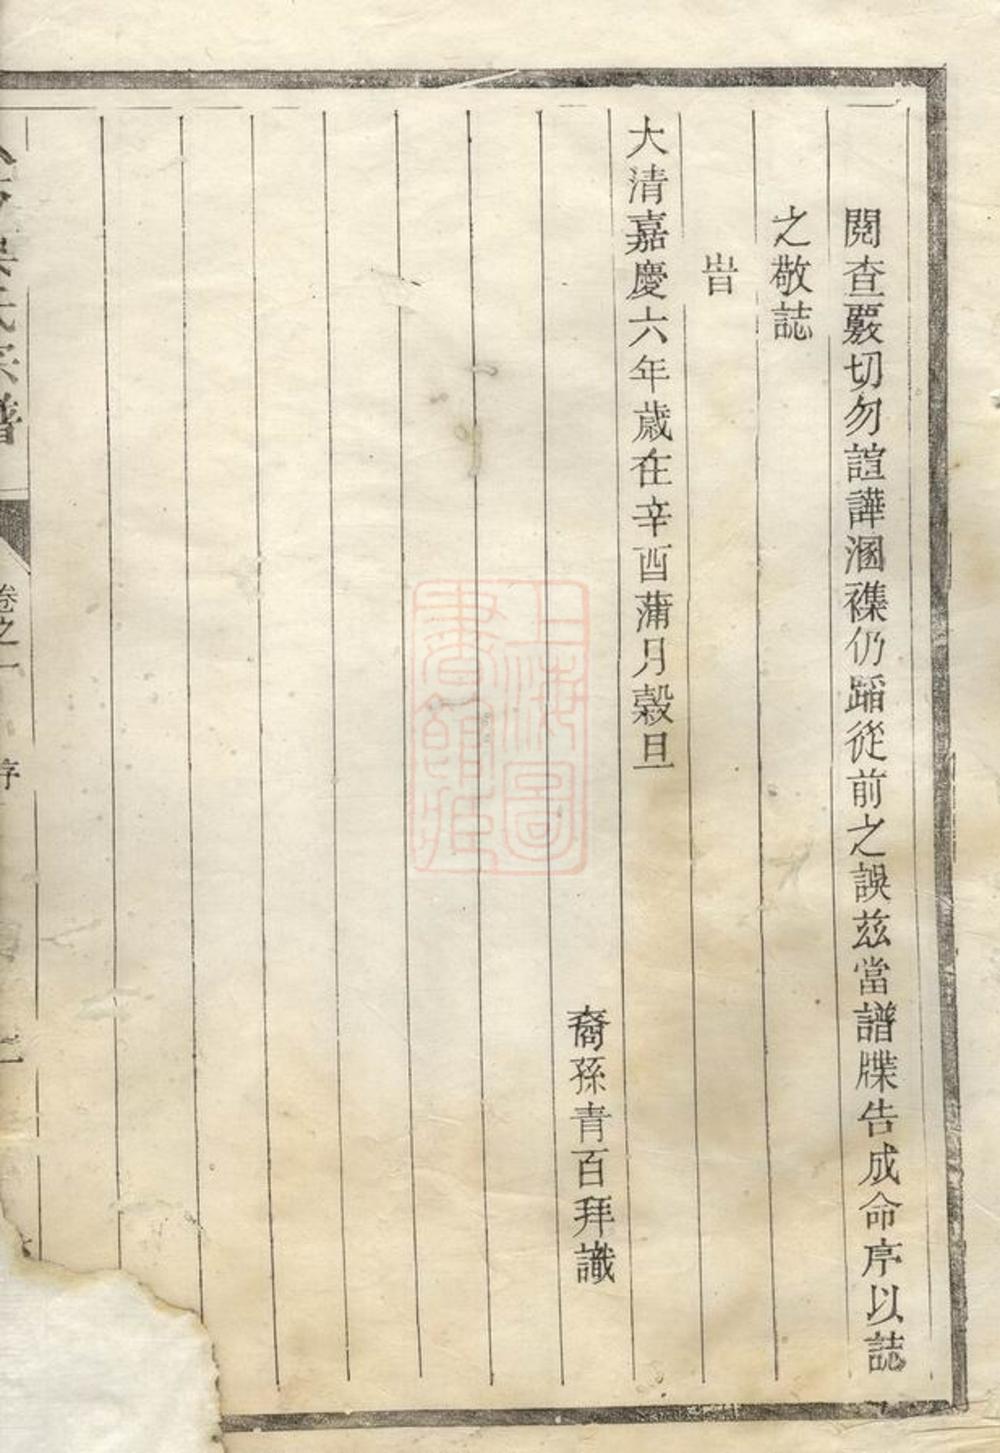 閱查覈切勿諠譁溷襍仍蹈從前之誤茲當譜牒告成命序以誌
之敬誌
旹
大清嘉慶六年歲在辛酉蒲月穀旦
裔孫青百拜識
氏宗譜
卷之一
序
二
上海圖
書館藏